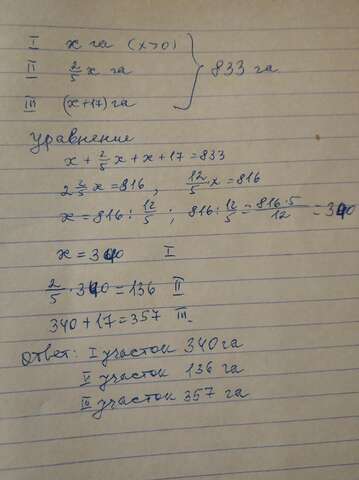 I x га (x>0)
II 2/5 x га
833 га
III (x+17) га
Уравнение
x + 2/5 x + x + 17 = 833
2 2/5 x = 816, 12/5 · x = 816
x = 816 : 12/5 ; 816 : 12/5 = 816·5/12 = 340
x = 340 I
2/5 · 340 = 136 II
340 + 17 = 357 III
Ответ: I участок 340 га
II участок 136 га
III участок 357 га